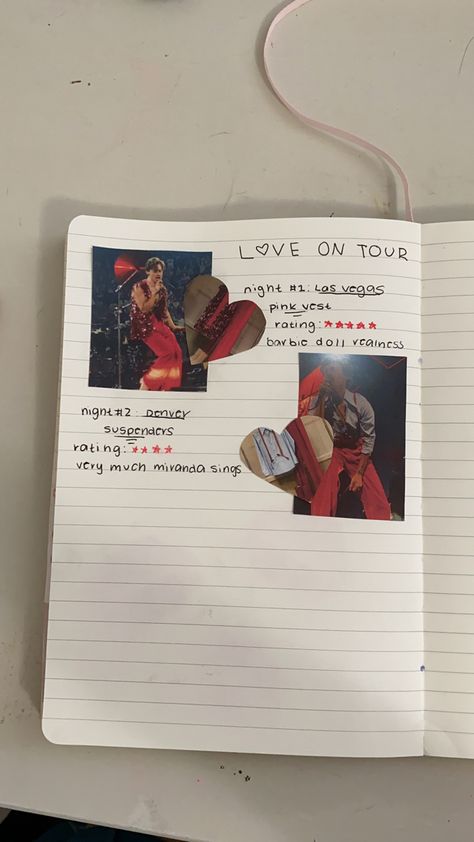 L♡VE ON TOUR
night #1: Las vegas
pink vest
rating: ★★★★★
barbie doll realness
night #2: Denver
suspenders
rating: ★★★★
very much miranda sings